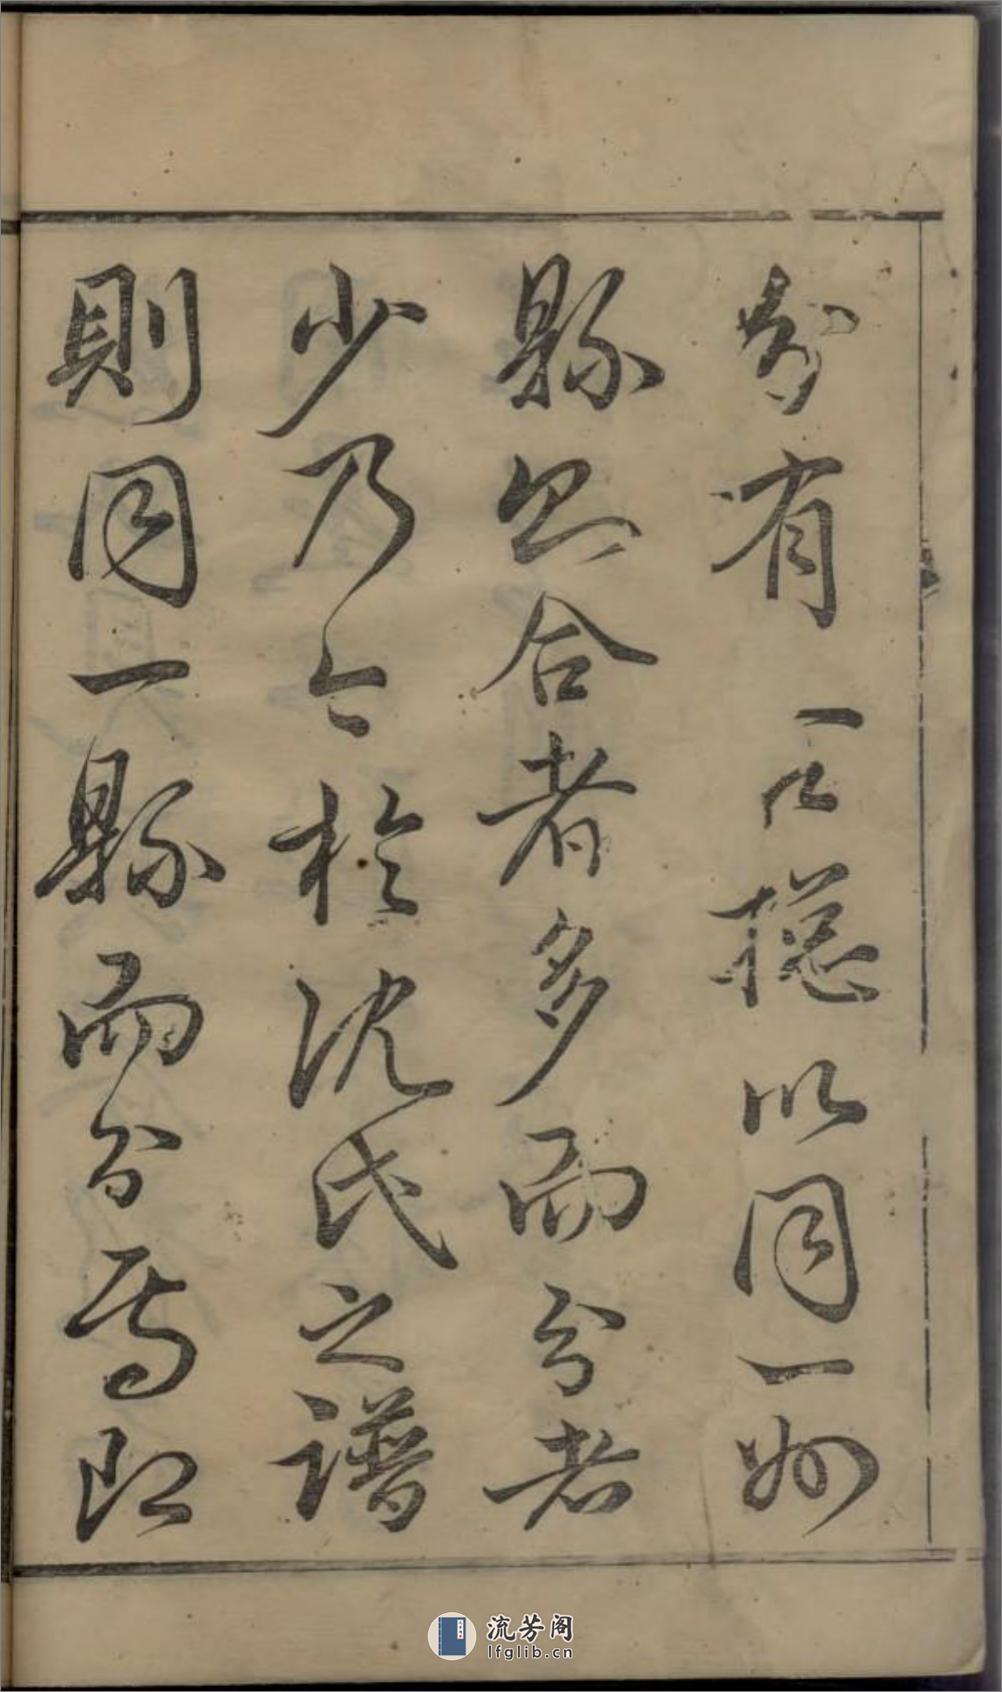 有一總以同一州
縣合者多而分者
少乃今於沈氏之譜
則同一縣而分焉即
流芳阁
lfglib.cn